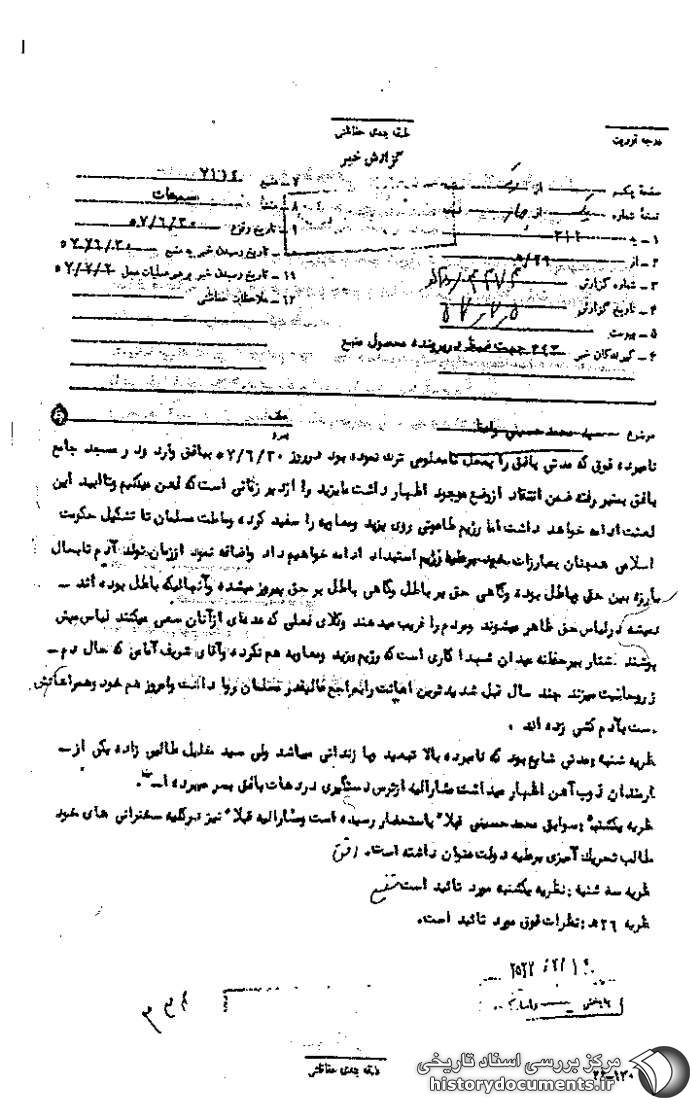 طبقه بندی حفاظتی
درجه فوریت
گزارش خبر
صفحه یک از
نسخه شماره از چهار
۱ - به ۳۱۲
۲ - از ۲۶/ه
۳ - شماره گزارش
۴ - تاریخ گزارش ۵۷٫۷٫۵
۵ - پیوست
۶ - گیرندگان خبر ۳۴۳ جهت ضبط در پرونده محصول منبع
۷ - منبع ۷۱۶۴
۸ - منشأ مسموعات
۹ - تاریخ وقوع ۵۷/۶/۳۰
تاریخ رسیدن خبر به منبع
۱۱ - تاریخ رسیدن خبر به رهبر عملیات محل ۵۷/۷/۲
۱۲ - ملاحظات حفاظتی
موضوع سید محمد حسینی
نامبرده فوق که مدتی بافق را بمحل نامعلومی ترک نموده بود در روز ۵۷/۶/۳۰ ببافق وارد و در مسجد جامع
بافق بمنبر رفته ضمن انتقاد از وضع موجود اظهار داشت ما یزید را از دیر زمانی است که لعن میکنیم و تا ابد این
لعنت ادامه خواهد داشت اما رژیم طاغوتی روی یزید و معاویه را سفید کرده و ما ملت مسلمان تا تشکیل حکومت
اسلامی همچنان بمبارزات خود برعلیه رژیم استبداد ادامه خواهیم داد واضافه نمود از زمان تولد آدم تابحال
مبارزه بین حق و باطل بوده و گاهی حق بر باطل و گاهی باطل بر حق پیروز میشده و آنهائیکه باطل بوده اند -
همیشه در لباس حق ظاهر میشوند و مردم را فریب میدهند وکلای فعلی که عده ای از آنان سعی میکنند لباس میش
بپوشند . کشتار بیرحمانه میدان شهدا کاری است که رژیم یزید و معاویه هم نکرده و آقای شریف امامی که حال دم -
از روحانیت میزند چند سال قبل شدیدترین اهانت را بمراجع عالیقدر مسلمان روا داشت و امروز هم خود و همراهانش
دست به آدم کشی زده اند .
نظریه شنبه : مدتی شایع بود که نامبرده بالا تبعید و یا زندانی میباشد ولی سید خلیل طالبی زاده یکی از -
کارمندان ذوب آهن اظهار میداشت مشارالیه از ترس دستگیری در دهات بافق بسر میبرده است .
نظریه یکشنبه : سوابق محمد حسینی قبلاً باستحضار رسیده است و مشارالیه قبلاً نیز در کلیه سخنرانی های خود
مطالب تحریک آمیزی برعلیه دولت عنوان داشته است .
نظریه سه شنبه : نظریه یکشنبه مورد تائید است
نظریه ۲۶ ه : نظرات فوق مورد تائید است .
طبقه بندی حفاظتی
۲۴-۱۳۰
مرکز بررسی اسناد تاریخی
historydocuments.ir